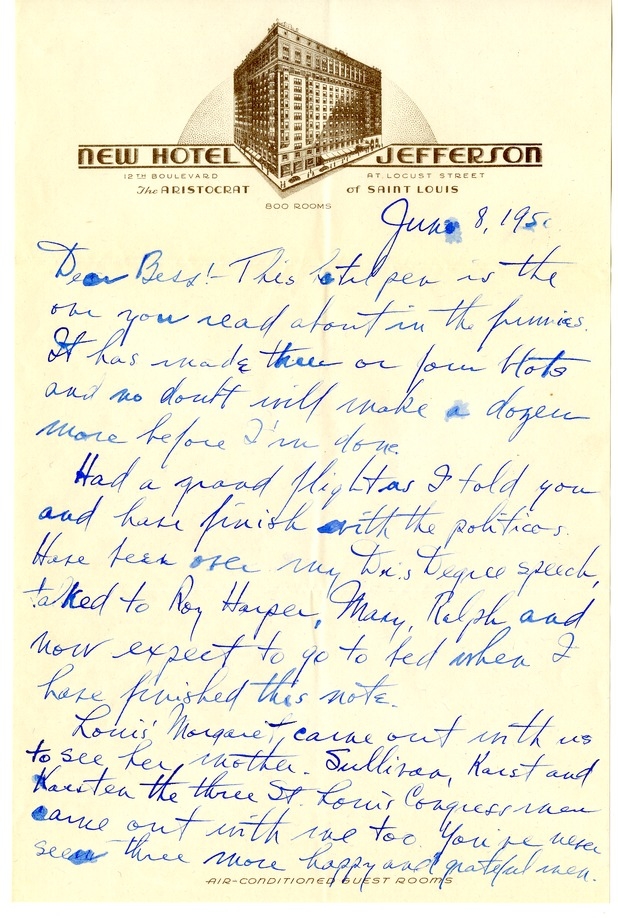 NEW HOTEL JEFFERSON
12TH BOULEVARD AT LOCUST STREET
The ARISTOCRAT of SAINT LOUIS
800 ROOMS
June 8, 195
Dear Bess:- This hotel pen is the
one you read about in the funnies.
It has made three or four blots
and no doubt will make a dozen
more before I'm done.
Had a grand flight as I told you
and have finish with the politicos.
Have been over my Dr.s Degree speech,
talked to Roy Harper, Mary, Ralph and
now expect to go to bed when I
have finished this note.
Louis' Margaret, came out with us
to see her mother. Sullivan, Karst and
Karsten the three St. Louis Congressmen
came out with me too. You've never
seen three more happy and grateful men.
AIR-CONDITIONED GUEST ROOMS